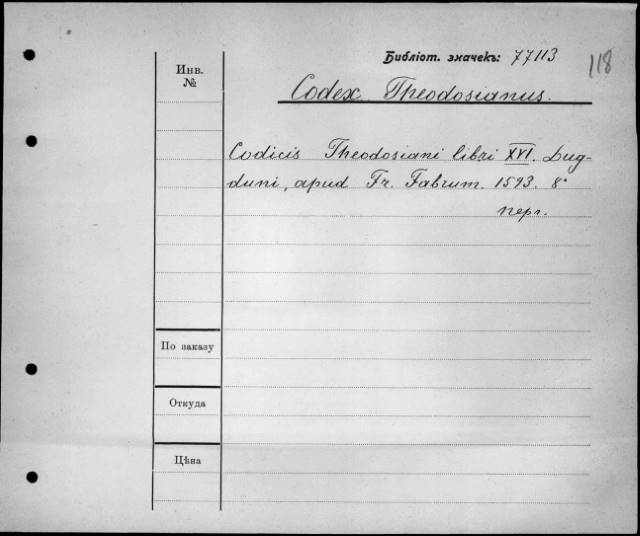 Библіот. значекъ: 77113
118
Инв.
№
Codex Theodosianus.
Codicis Theodosiani libri XVI. Lug-
duni, apud Fr. Fabrum. 1593. 8°
перг.
По заказу
Откуда
Цѣна